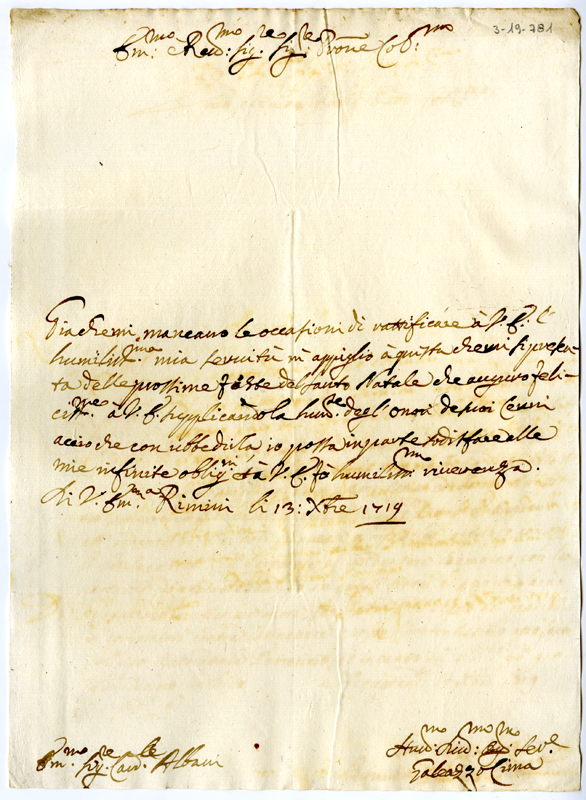 3-19-781
Em:mo e Rev:mo Sig:re Sig:re Prone Col:mo
Gia che mi mancano le occasioni di rattificare à V. E. l'
humiliss:ma mia servitù m'appiglio à questa che mi si presen-
ta delle prossime feste del Santo Natale che auguro feli-
cis:me à V. E. supplicandola hum:te degl'onori de suoi Cenni
acciò che con ubbedirla io possa in parte sodisfare alle
mie infinite oblig:ni à V. E. fò humiliss:mo riverenza.
Di V. Em:za Rimini li 13: Xbre 1719
Em:mo Sig:re Card:le Albani
Hum:mo Serv:
Galeazzo Cima